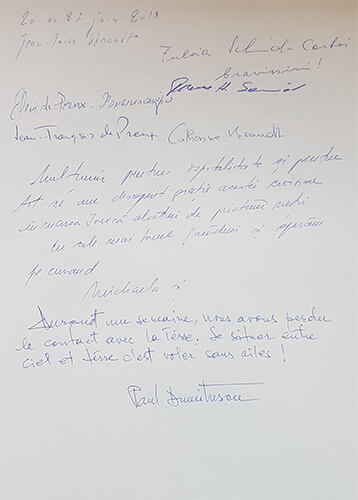 20 au 27 juin 2018
Jean-Marie Brandt
Fulvia Schmid-
bravissimi!
de Preux -
Jean-François de Preux Catherine Brandt
Mulțumim pentru ospitalitate și pentru
tot ce am descoperit grație acestei croisiere
în marea Ionică alături de prietenii noștri
Cu cele mai bune gânduri și sperăm
pe curând
Michaela și
Durant une semaine, nous avons perdu
le contact avec la Terre. Se situer entre
ciel et terre c'est voler sans ailes !
Paul Dumitrescu